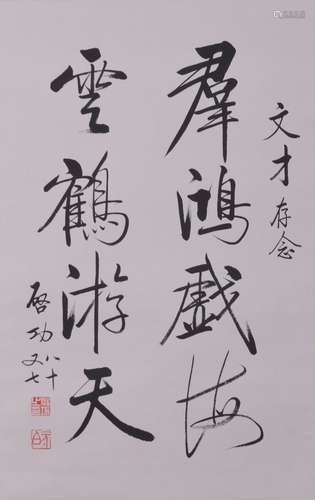 文才存念
羣鴻戲海
雲鶴游天
啓功八十又七